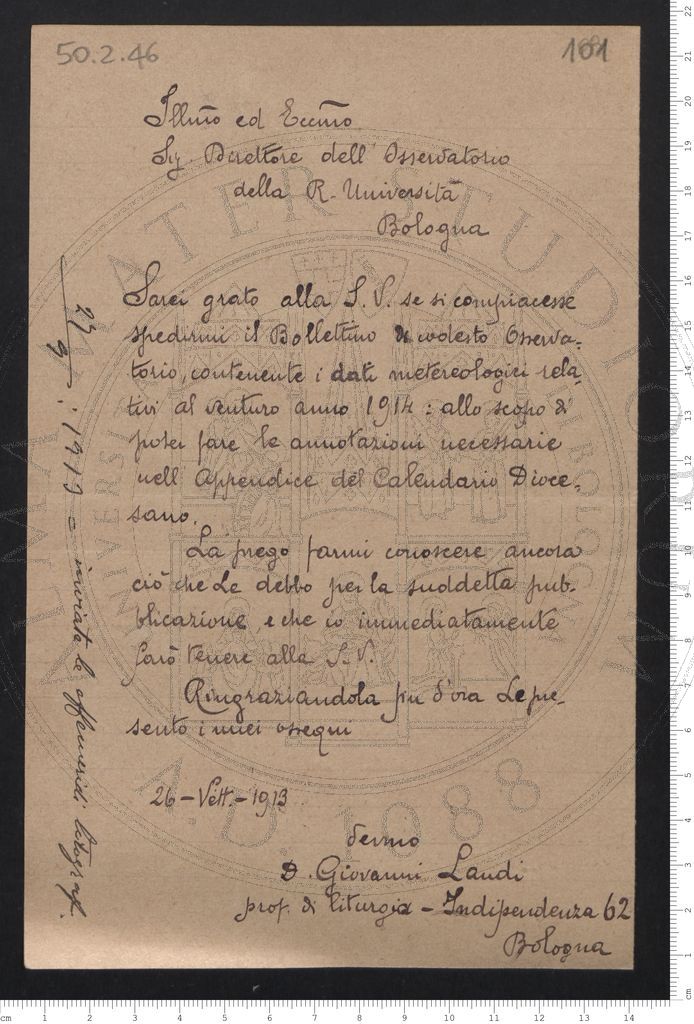 50.2.46
101
Illmo ed Eccmo
Sig. Direttore dell'Osservatorio
della R. Università
Bologna
Sarei grato alla S. V. se si compiacesse
spedirmi il Bollettino di codesto Osserva-
torio, contenente i dati metereologici rela-
tivi al venturo anno 1914: allo scopo di
poter fare le annotazioni necessarie
nell'Appendice del Calendario Dioce-
sano.
La prego farmi conoscere ancora
ciò che Le debbo per la suddetta pub-
blicazione, e che io immediatamente
farò tenere alla S. V.
Ringraziandola fin d'ora Le pre-
sento i miei ossequi
26 - Sett. - 1913
devmo
D. Giovanni Landi
prof. di liturgia - Indipendenza 62
Bologna
27/9: 1913 - inviate le effemeridi litograf.
ALMA MATER STUDIORUM
A.D. 1088